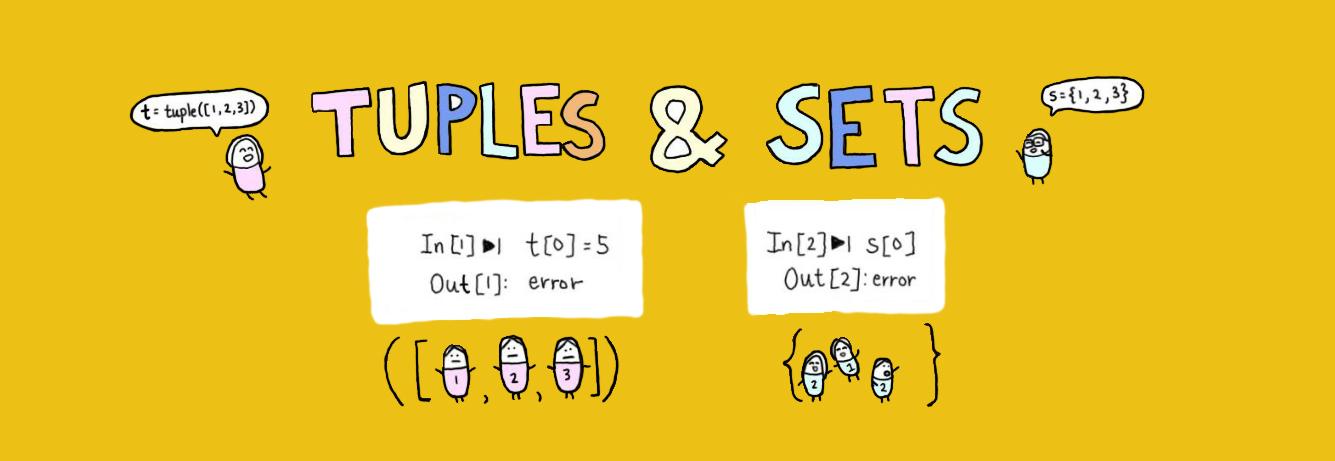 t = tuple([1,2,3])
TUPLES & SETS
s={1,2,3}
In[1]▶| t[0]=5
Out[1]: error
In[2]▶| s[0]
Out[2]: error
([1, 2, 3])
{2 1 2}